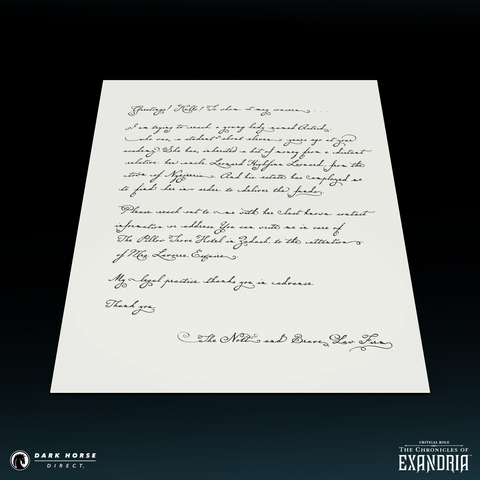 Greetings! Hello! To whom it may concern . . . .
I am trying to reach a young lady named Astrid,
who was a student about eleven years ago at your
academy. She has inherited a bit of money from a distant
relative: her uncle Leonard Highfire Leonard, from the
town of Nogvurot. And his estate has employed me
to find her in order to deliver the funds.
Please reach out to me with her last known contact
information or address. You can write me in care of
The Pillow Trove Hotel in Zadash to the attention
of Mrs. Lavorre, Esquire.
My legal practice thanks you in advance.
Thank you,
The Nott and Brave Law Firm
DARK HORSE
DIRECT.
CRITICAL ROLE
THE CHRONICLES OF
EXANDRIA